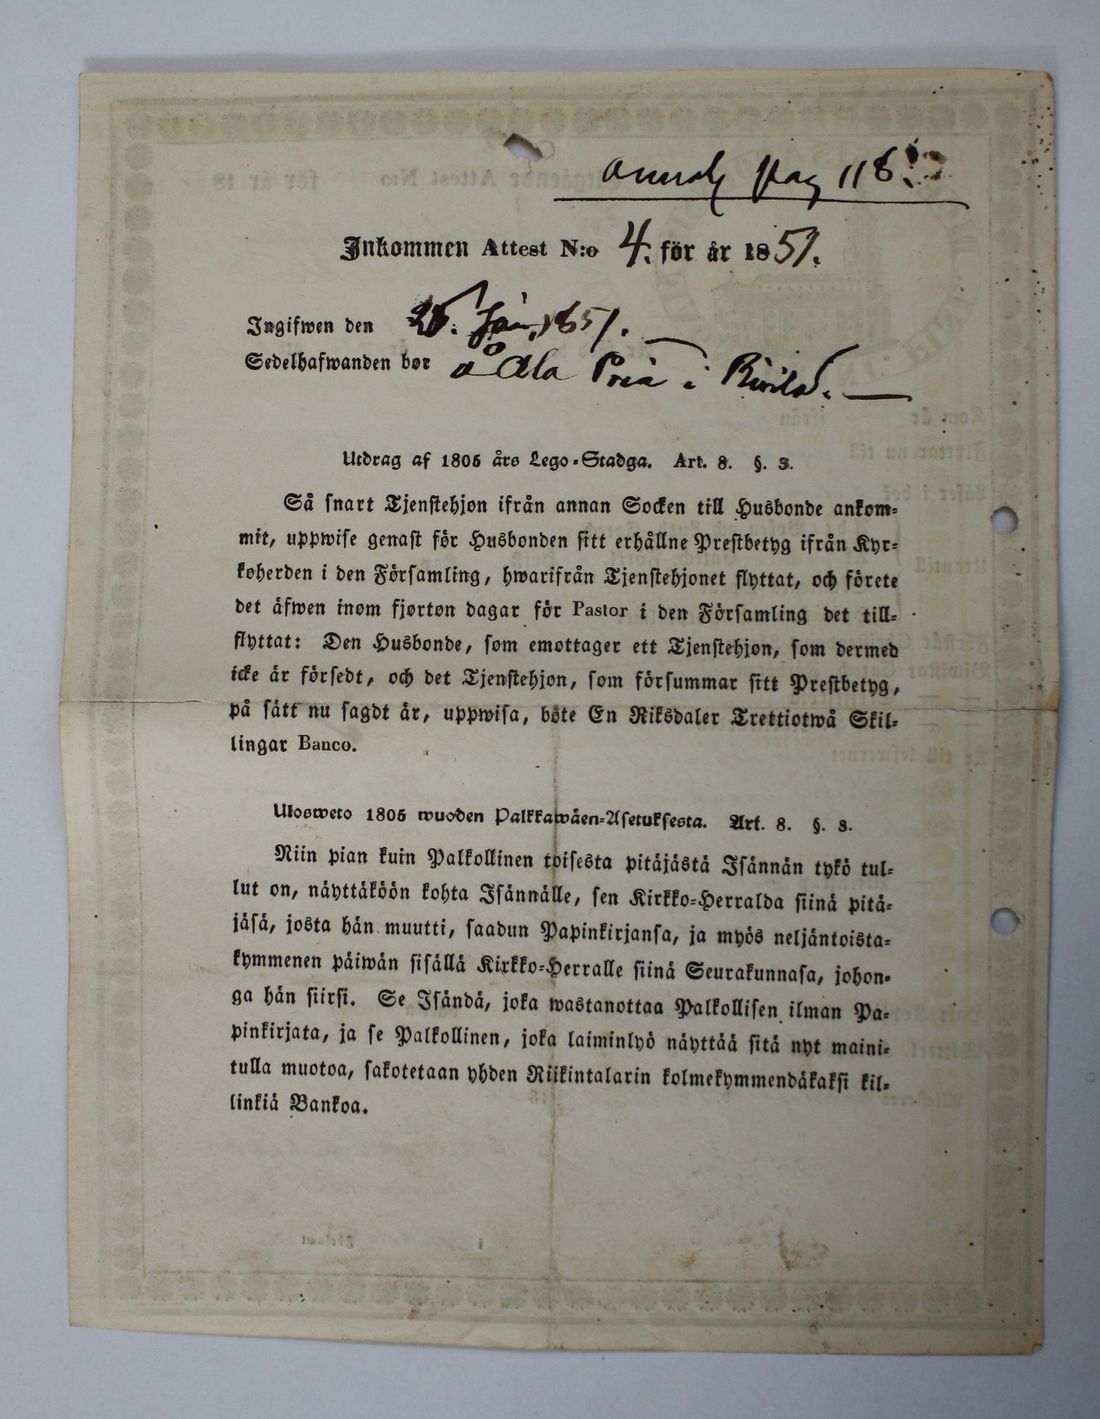 pag 118
Inkommen Attest N:o 4. för år 1851.
Ingifwen den 28. Jan. 1851.
Sedelhafwanden bor å Ala i
Utdrag af 1805 års Lego-Stadga. Art. 8. §. 3.
Så snart Tjenstehjon ifrån annan Socken till Husbonde ankom-
mit, uppwise genast för Husbonden sitt erhållne Prestbetyg ifrån Kyr-
koherden i den Församling, hwarifrån Tjenstehjonet flyttat, och förete
det äfwen inom fjorton dagar för Pastor i den Församling det till-
flyttat: Den Husbonde, som emottager ett Tjenstehjon, som dermed
icke är försedt, och det Tjenstehjon, som försummar sitt Prestbetyg,
på sätt nu sagdt är, uppwisa, böte En Riksdaler Trettiotwå Skil-
lingar Banco.
Ulosweto 1805 wuoden Palkkawäen-Asetuksesta. Art. 8. §. 3.
Niin pian kuin Palkollinen toisesta pitäjästä Isännän tykö tul-
lut on, näyttäköön kohta Isännälle, sen Kirkko-Herralda siinä pitä-
jäsä, josta hän muutti, saadun Papinkirjansa, ja myös neljäntoista-
kymmenen päiwän sisällä Kirkko-Herralle siinä Seurakunnasa, johon-
ga hän siirsi. Se Isändä, joka wastanottaa Palkollisen ilman Pa-
pinkirjata, ja se Palkollinen, joka laiminlyö näyttää sitä nyt maini-
tulla muotoa, sakotetaan yhden Riikintalarin kolmekymmendäkaksi kil-
linkiä Bankoa.